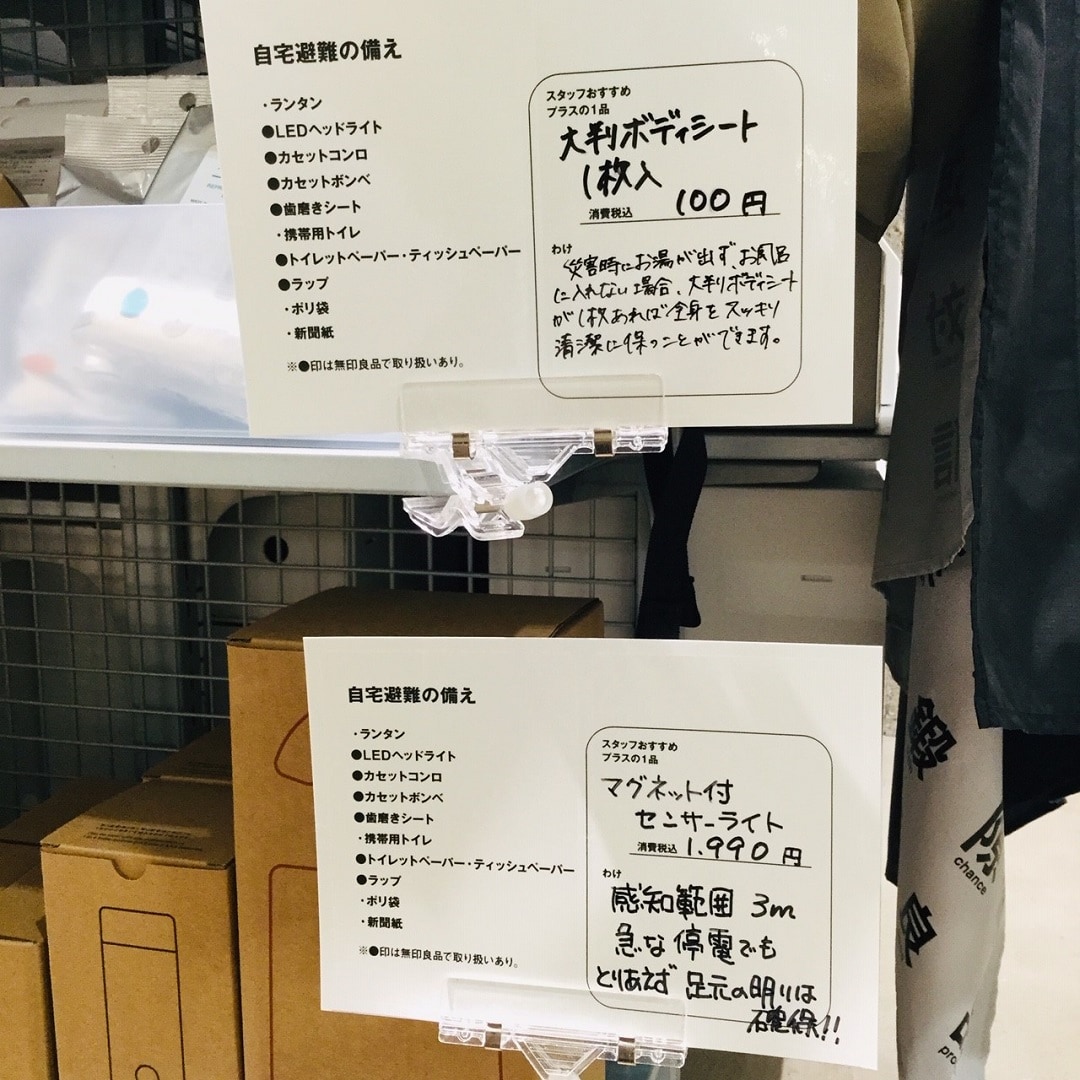 自宅避難の備え
・ランタン
●LEDヘッドライト
●カセットコンロ
●カセットボンベ
●歯磨きシート
・携帯用トイレ
●トイレットペーパー・ティッシュペーパー
●ラップ
・ポリ袋
・新聞紙
※●印は無印良品で取り扱いあり。
スタッフおすすめ
プラスの1品
大判ボディシート
1枚入
消費税込 100 円
わけ
災害時にお湯が出ず、お風呂
に入れない場合、大判ボディシート
が1枚あれば全身をスッキリ
清潔に保つことができます。
自宅避難の備え
・ランタン
●LEDヘッドライト
●カセットコンロ
●カセットボンベ
●歯磨きシート
・携帯用トイレ
●トイレットペーパー・ティッシュペーパー
●ラップ
・ポリ袋
・新聞紙
※●印は無印良品で取り扱いあり。
スタッフおすすめ
プラスの1品
マグネット付
センサーライト
消費税込 1.990 円
わけ
感知範囲 3m
急な停電でも
とりあえず 足元の明りは
確保!!
鍛
chance
良